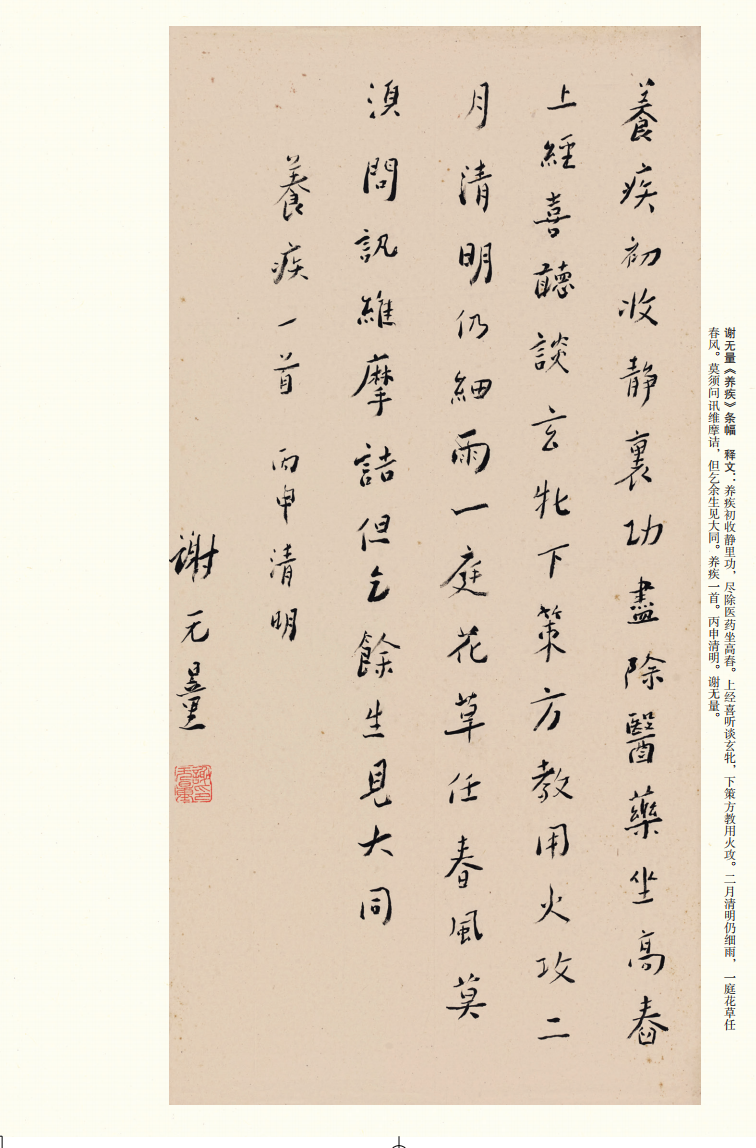 谢无量《养疾》条幅　释文：养疾初收静里功，尽除医药坐高舂。上经喜听谈玄牝，下策方教用火攻。二月清明仍细雨，一庭花草任
春风。莫须问讯维摩诘，但乞余生见大同。养疾一首。丙申清明。谢无量。
養疾初收静裏功盡除醫藥坐高舂
上經喜聽談玄牝下策方教用火攻二
月清明仍細雨一庭花草任春風莫
須問訊維摩詰但乞餘生見大同
養疾一首　丙申清明
謝无量